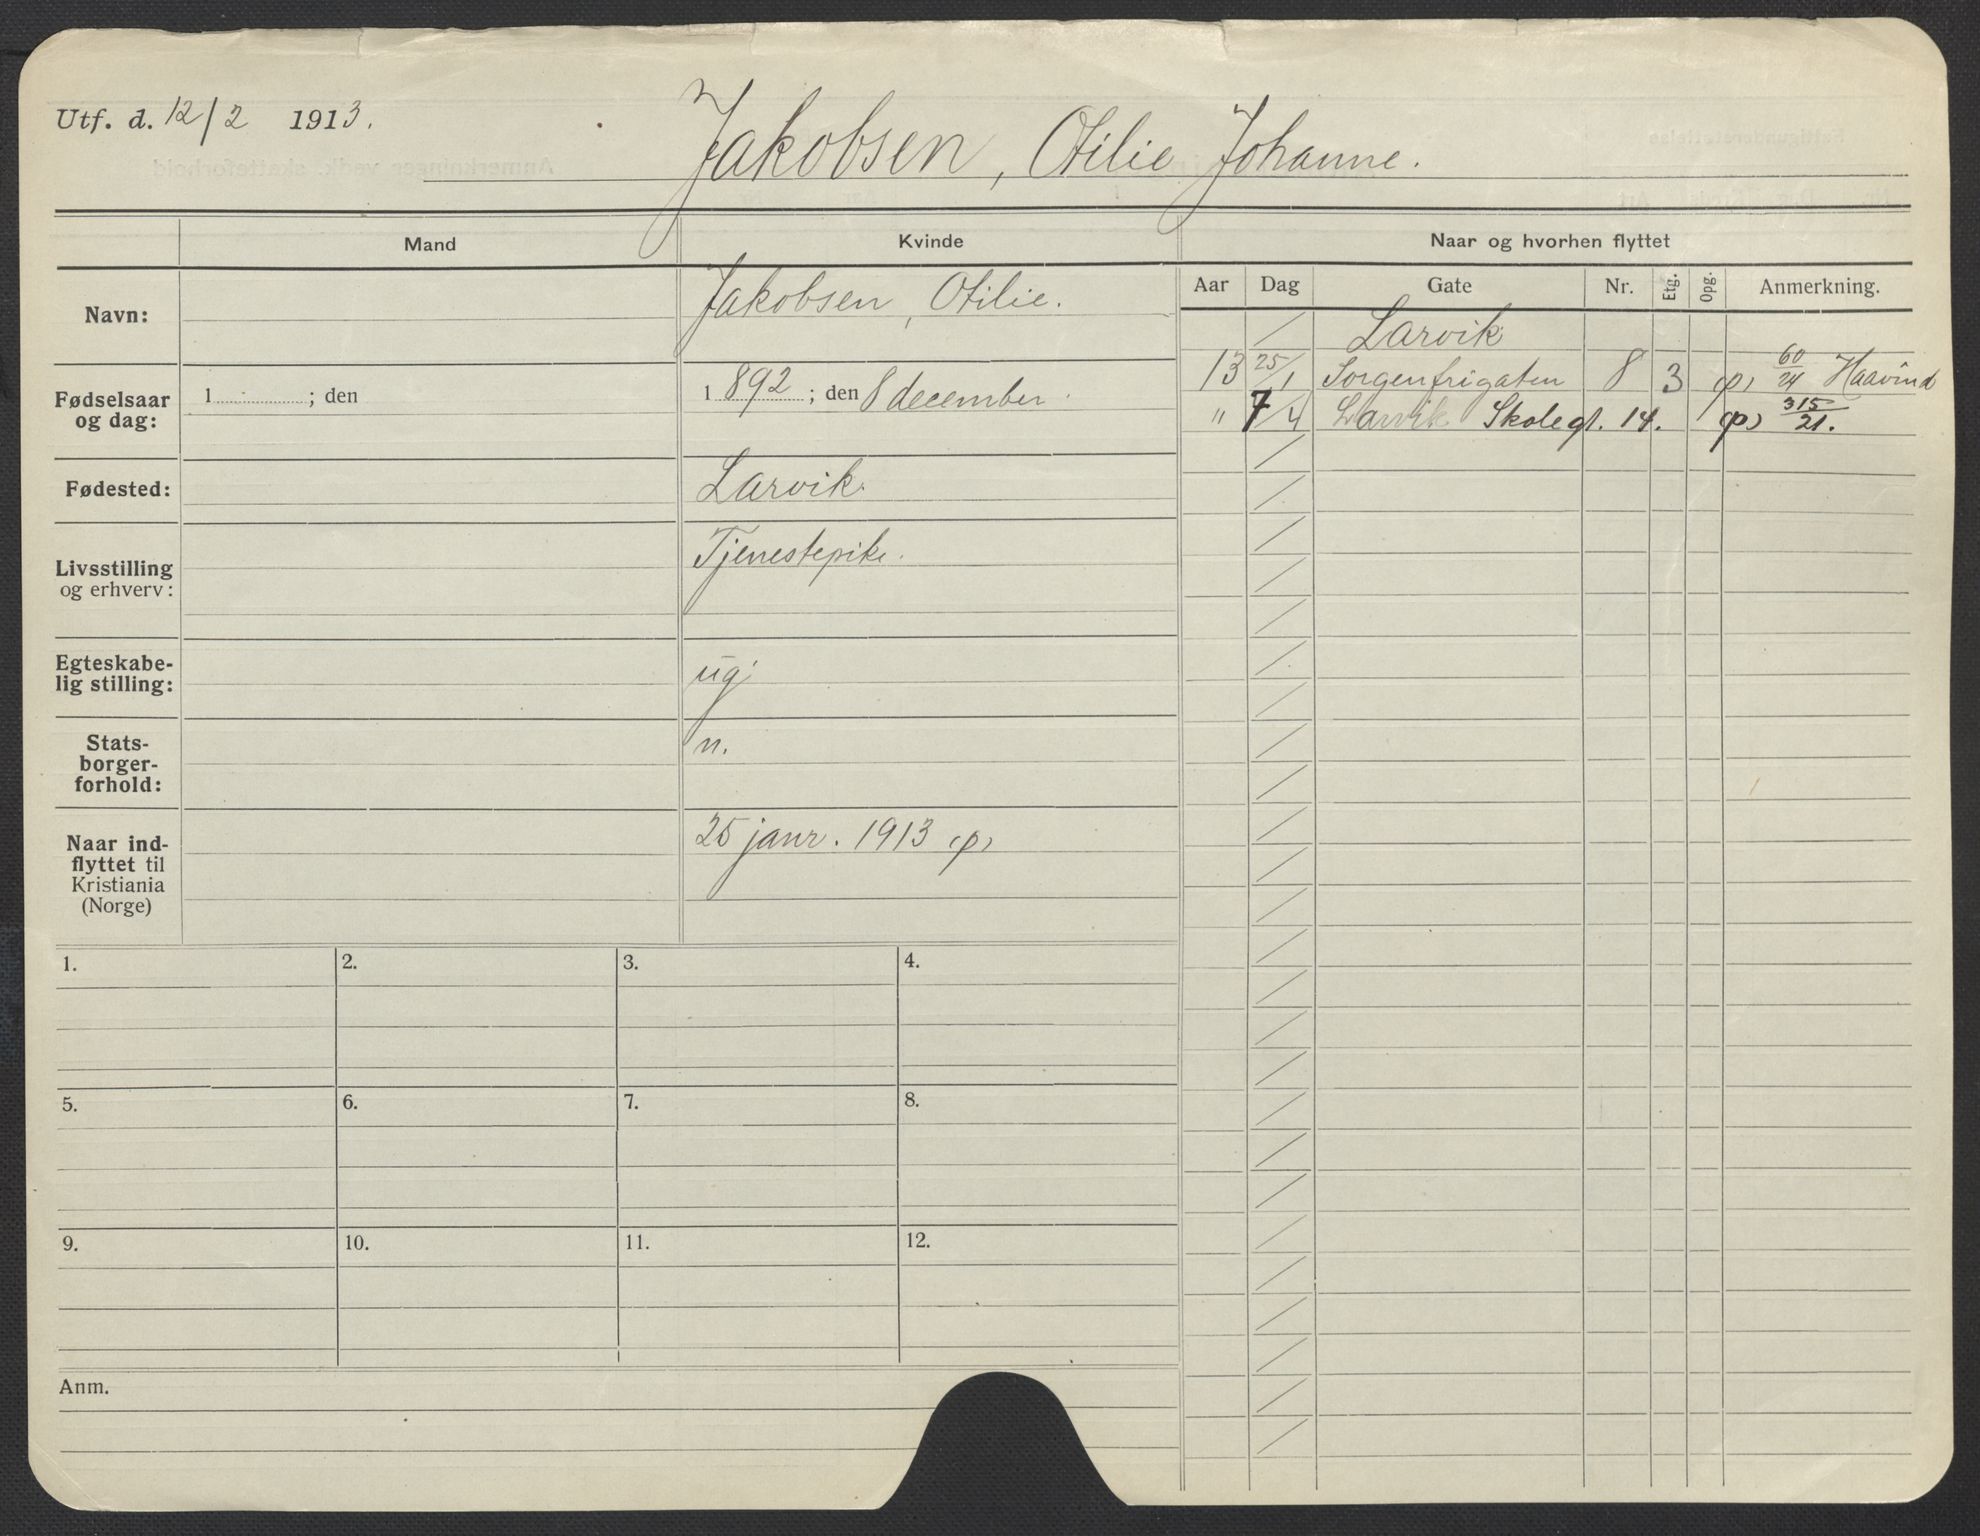 Utf. d. 12/2 1913.
Jakobsen, Otilie Johanne.
Mand
Kvinde
Naar og hvorhen flyttet
Aar Dag Gate Nr. Etg. Opg. Anmerkning.
Navn:
Jakobsen, Otilie.
Fødselsaar
og dag:
1 ; den
1892 ; den 8 december.
Fødested:
Larvik.
Livsstilling
og erhverv:
Tjenestepike.
Egteskabe-
lig stilling:
ug.
Stats-
borger-
forhold:
n.
Naar ind-
flyttet til
Kristiania
(Norge)
25 janr. 1913 (p)
Larvik
13 25/1 Sorgenfrigaten 8 3 (p) 60/24 Haavind
" 7/4 Larvik Skolegt. 14. (p) 315/21.
1.
2.
3.
4.
5.
6.
7.
8.
9.
10.
11.
12.
Anm.